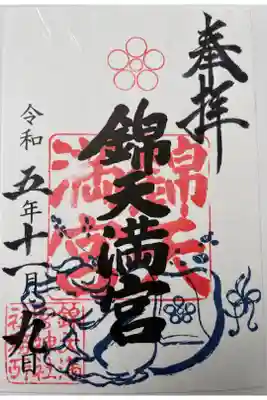 奉拝
錦天満宮
令和五年十一月九日
錦天満宮